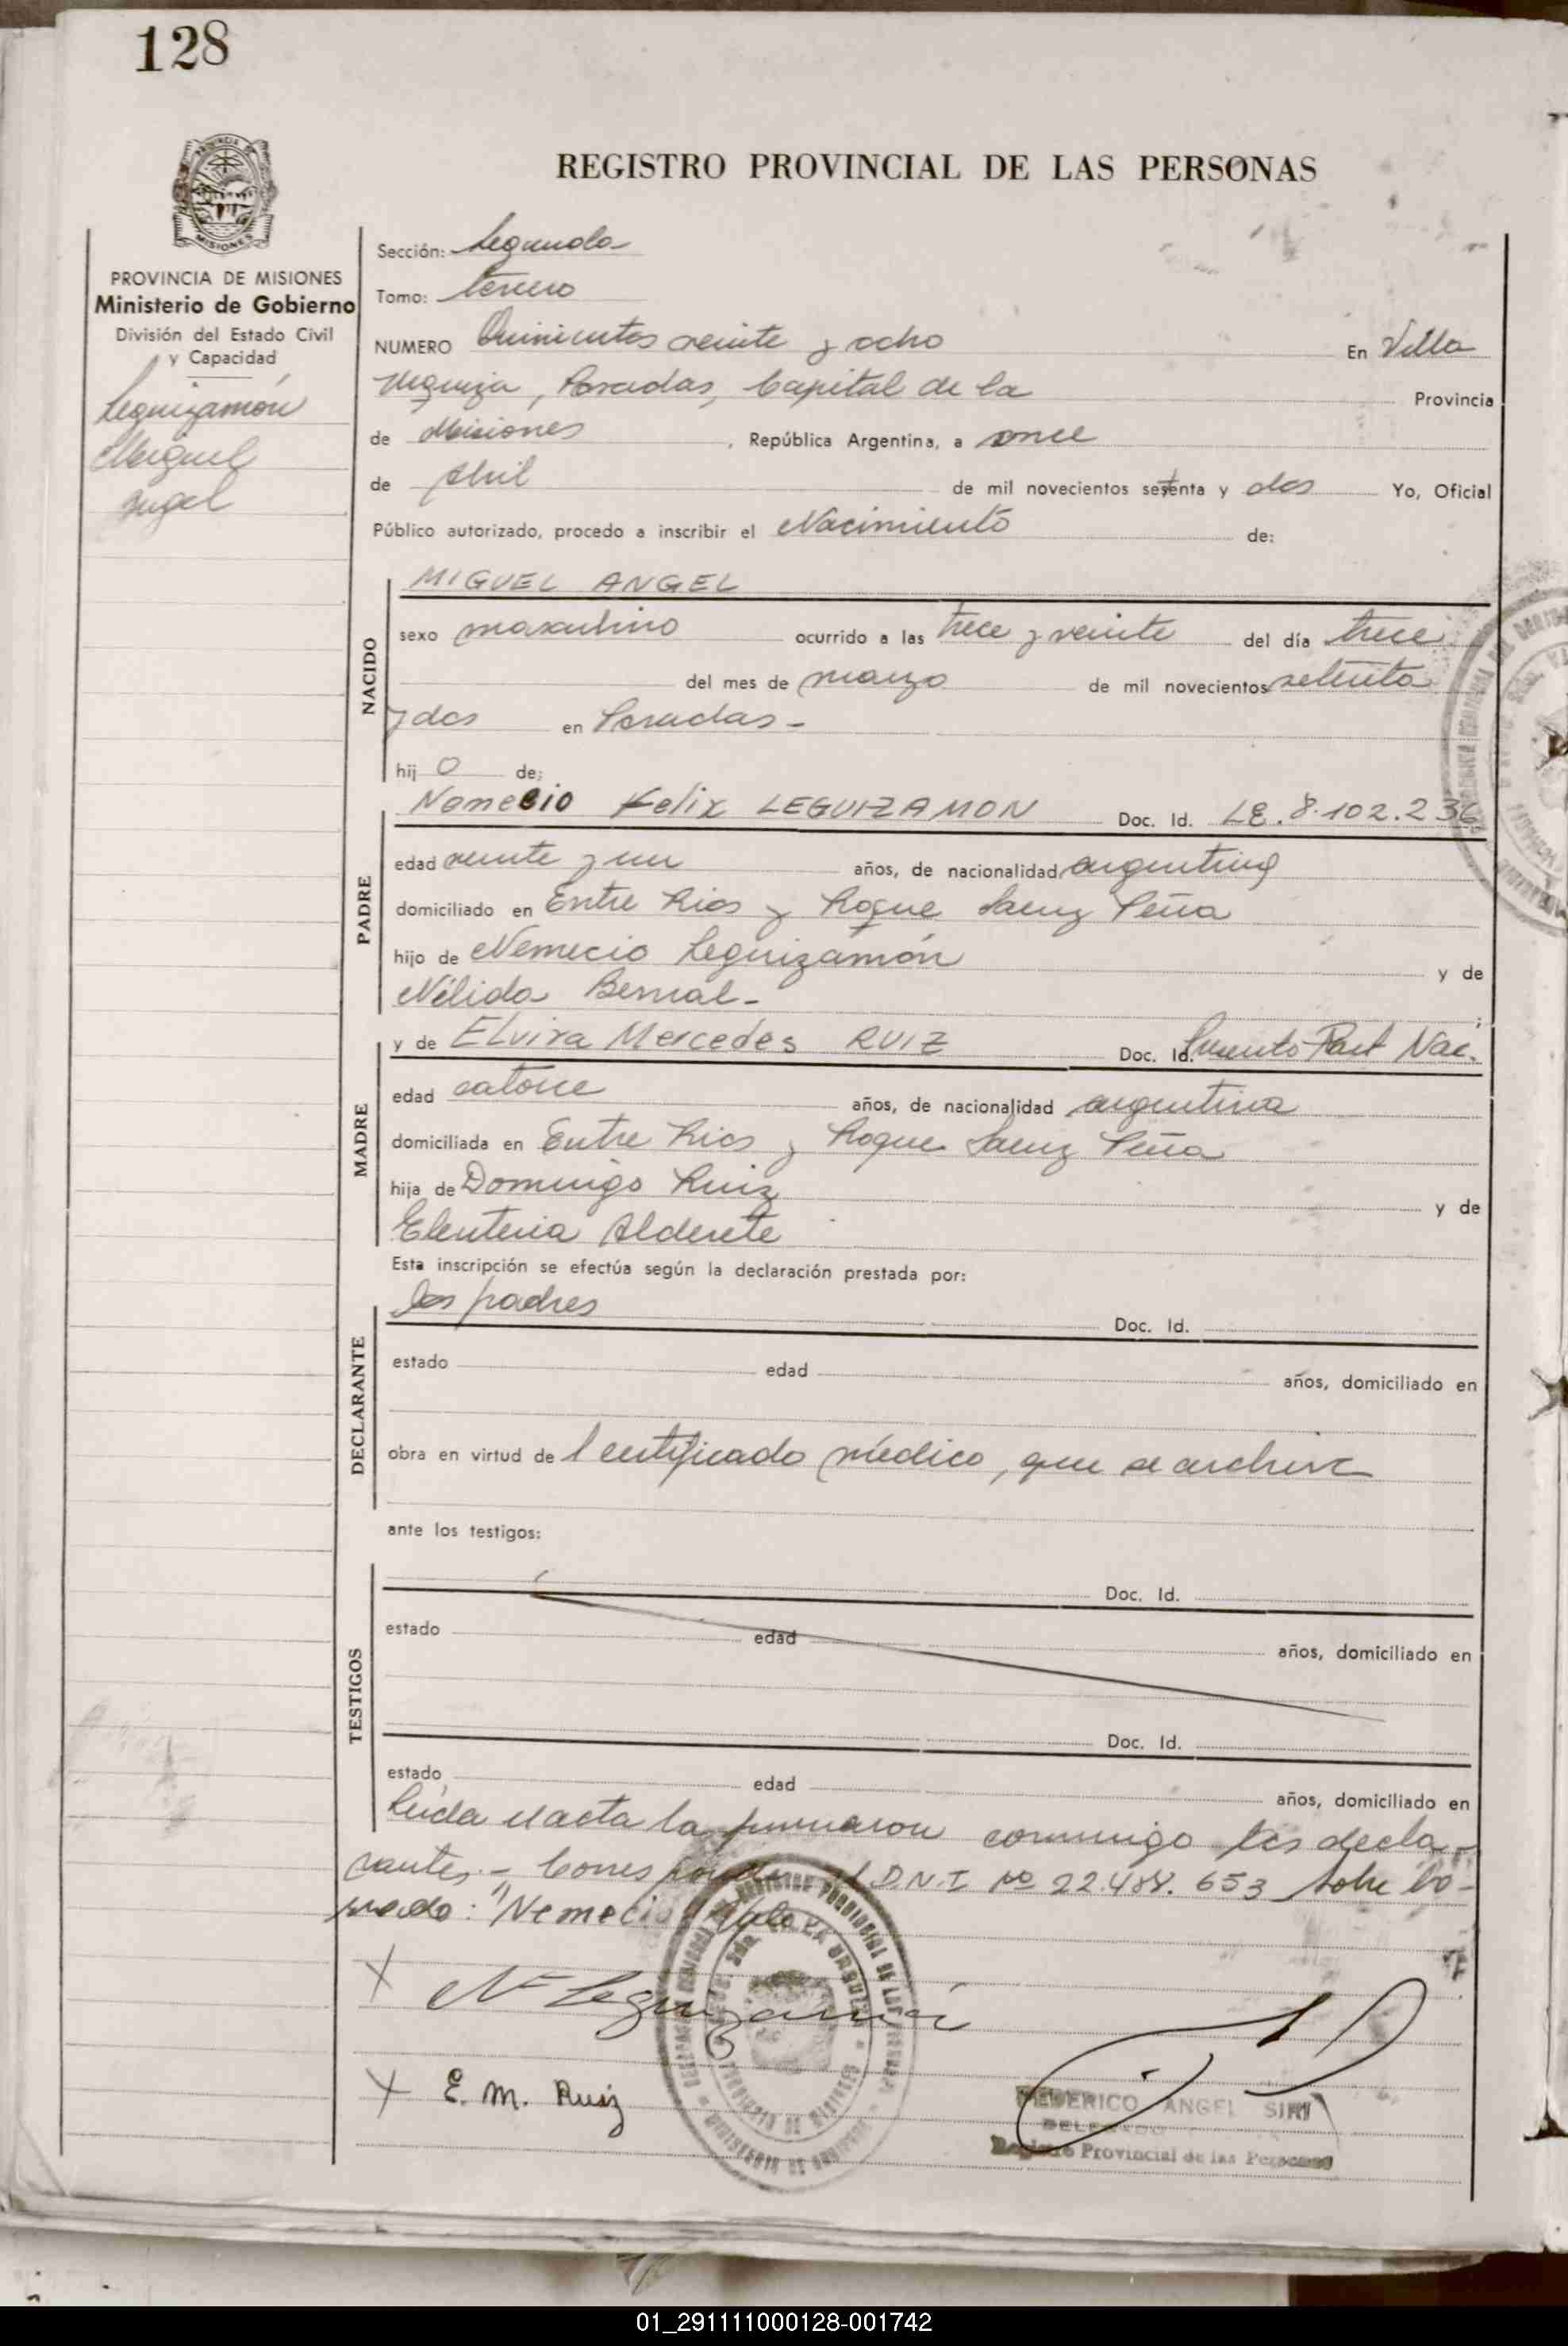 128
REGISTRO PROVINCIAL DE LAS PERSONAS
PROVINCIA DE MISIONES
Ministerio de Gobierno
División del Estado Civil
y Capacidad
Leguizamón
Miguel
Angel
Sección: Segunda
Tomo: tercero
NUMERO Quinientos veinte y ocho En Villa
Urquiza, Posadas, Capital de la Provincia
de Misiones, República Argentina, a once
de Abril de mil novecientos setenta y dos Yo, Oficial
Público autorizado, procedo a inscribir el Nacimiento de:
MIGUEL ANGEL
NACIDO
sexo masculino ocurrido a las trece y veinte del día trece
del mes de marzo de mil novecientos setenta
y dos en Posadas -
hij o de:
Nemecio Felix LEGUIZAMON Doc. Id. LE. 8.102.236
PADRE
edad veinte y un años, de nacionalidad argentina
domiciliado en Entre Rios y Roque Saenz Peña
hijo de Nemecio Leguizamón y de
Nélida Bernal - ;
y de Elvira Mercedes RUIZ Doc. Id. Part Nac.
MADRE
edad catorce años, de nacionalidad argentina
domiciliada en Entre Rios y Roque Saenz Peña
hija de Domingo Ruiz y de
Eleuteria Alderete
Esta inscripción se efectúa según la declaración prestada por:
los padres Doc. Id.
DECLARANTE
estado edad años, domiciliado en
obra en virtud de l certificado médico, que se archiva
ante los testigos:
Doc. Id.
TESTIGOS
estado edad años, domiciliado en
Doc. Id.
estado edad años, domiciliado en
Leída el acta la firmaron conmigo los decla-
rantes. - Corresponde el D.N.I Nº 22.488.653 Sobre bo-
rrado: "Nemecio" Vale
X N F Leguizamón
X E. M. Ruiz
FEDERICO ANGEL SIRI
DELEGADO
Registro Provincial de las Personas
01_291111000128-001742